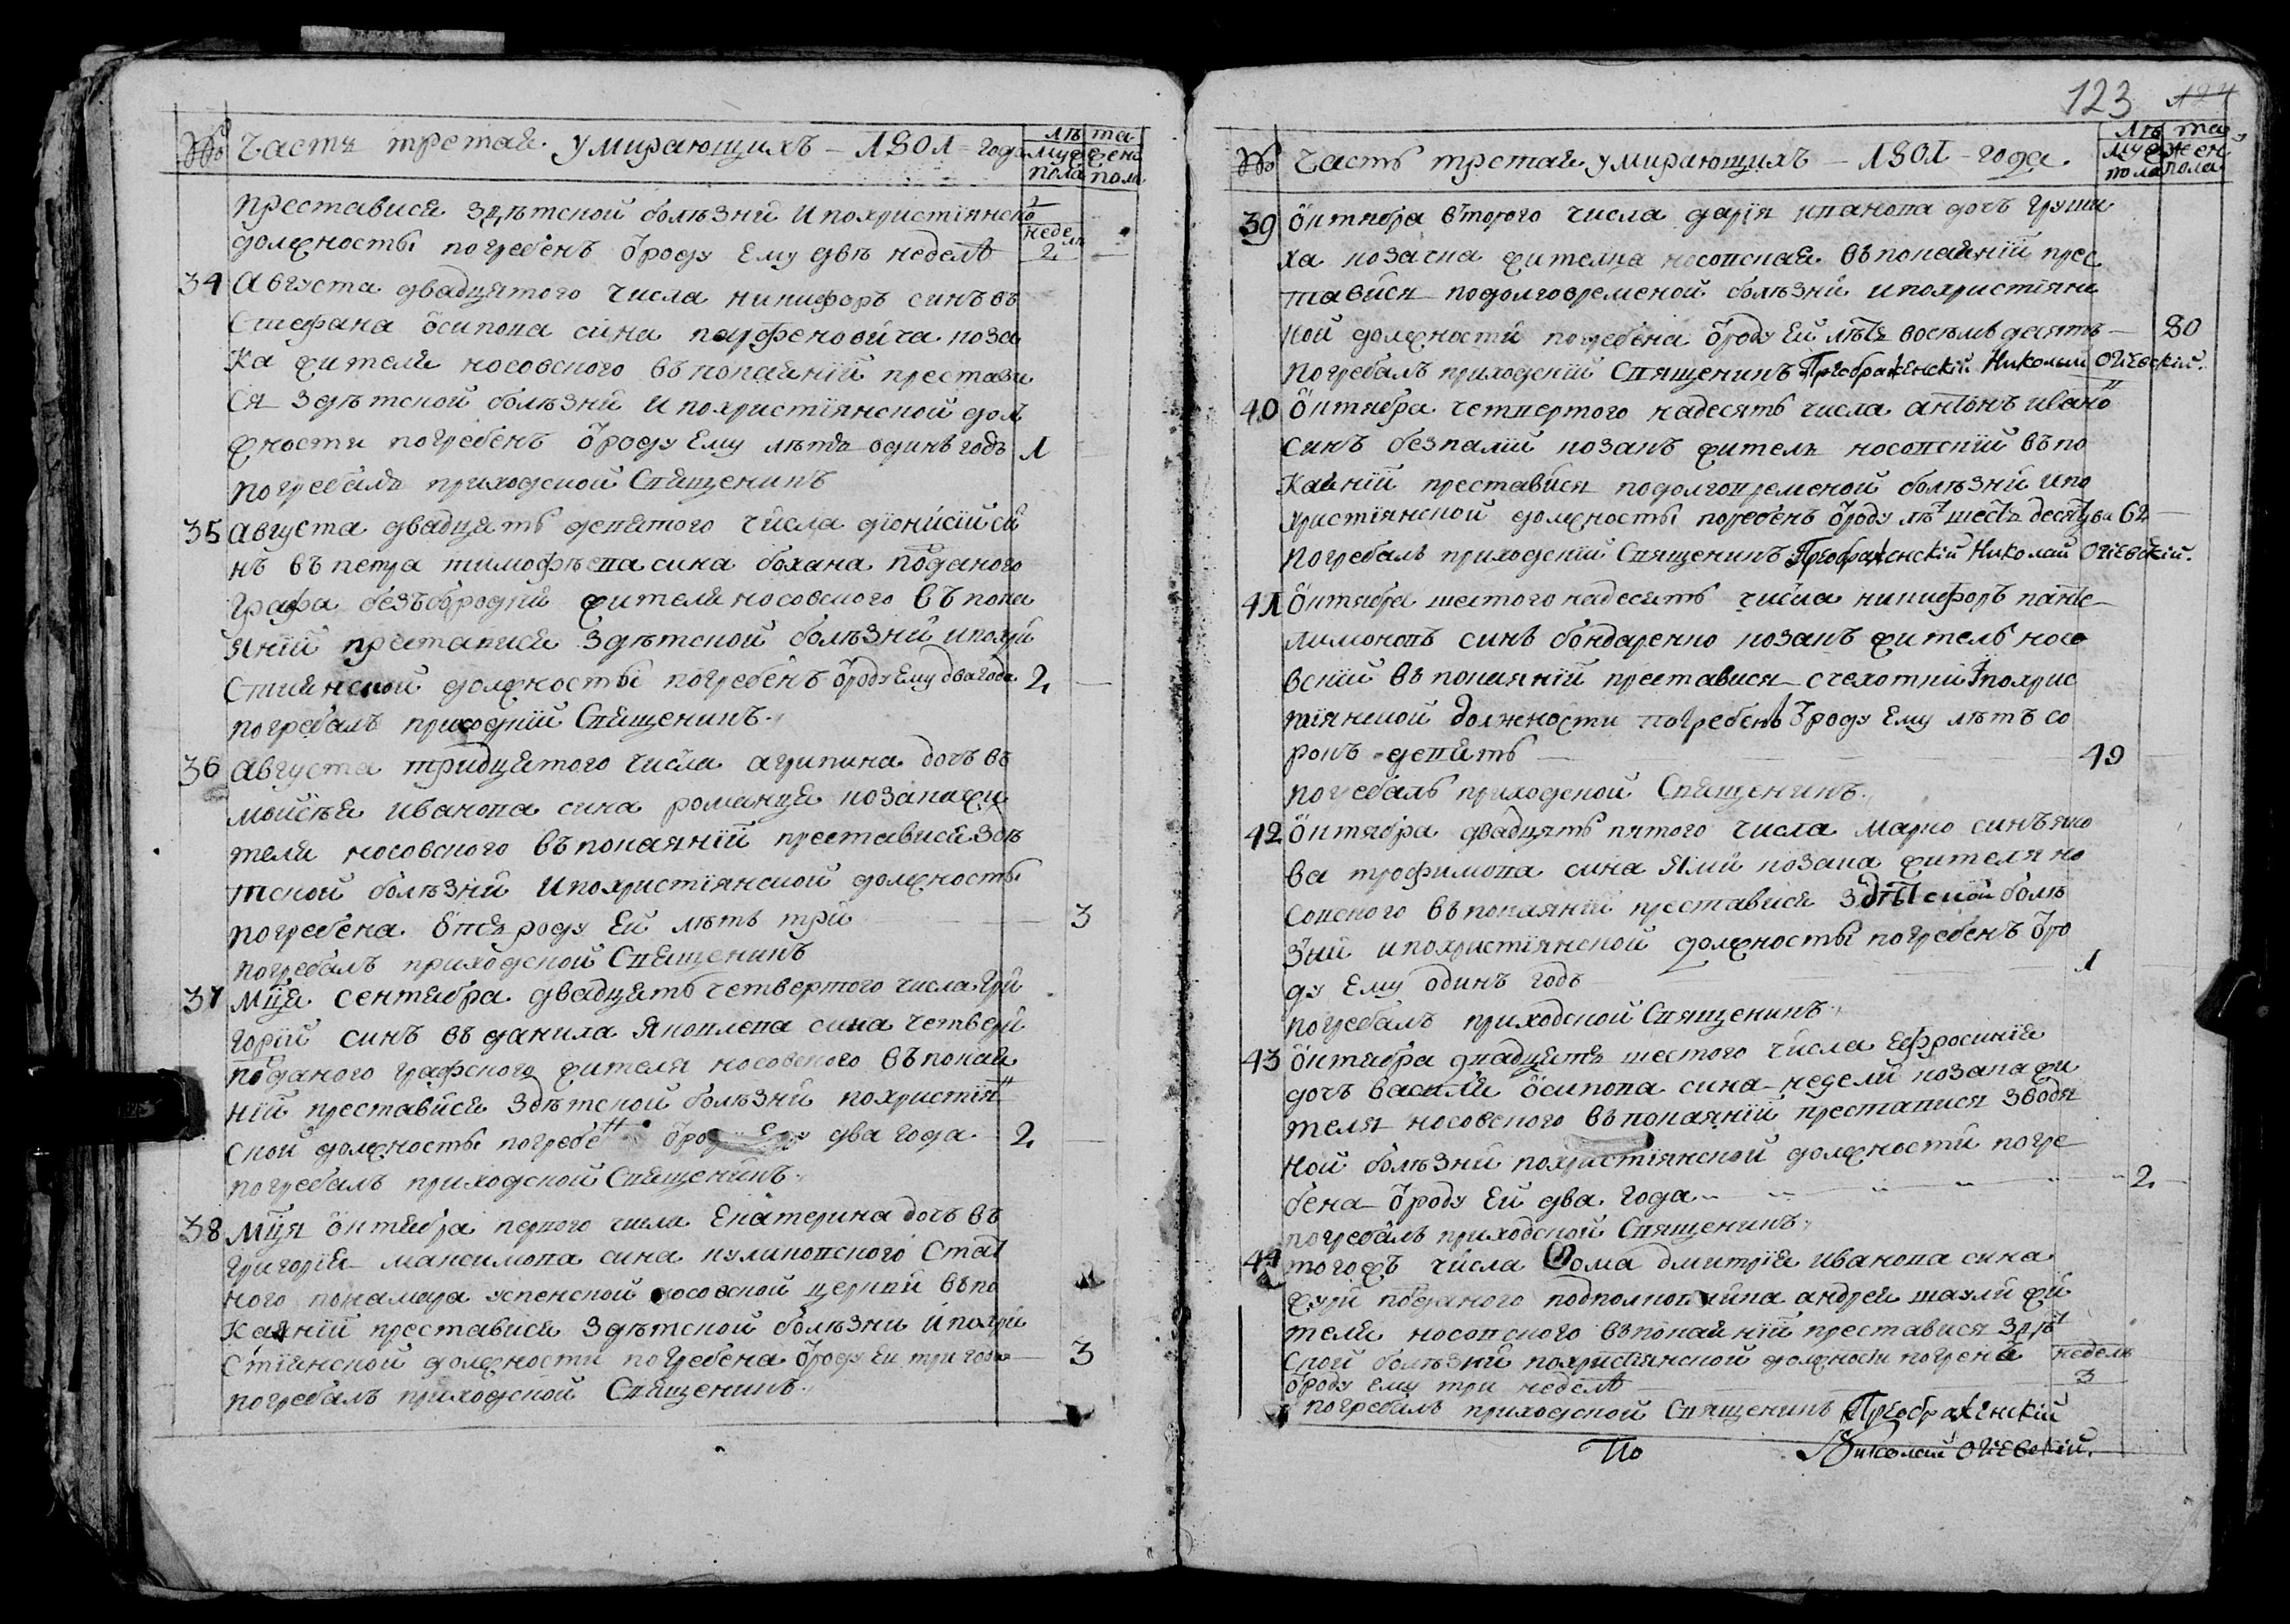 № Часть третая умирающихъ – 1801 = года
лѣ та
муж жен
пола пола
преставися здѣтской болѣзни и похристіянско
должносты погребенъ ѿроду ему двѣ неделѣ
недел
2
34 Августа двадцятого числа никифоръ синъ въ
Стефана осипова сина парфеновича коза
ка жителя носовского въ покаяніи престави
ся здѣтской болѣзни и похристіянской дол
жности погребенъ ѿроду ему лѣтъ одинъ годъ 1
погребалъ приходской Священикъ
35 Августа двадцять девятого числа діонисій си
нъ въ петра тимофѣева сина бохана поданого
Графа безъбородки жителя носовского въ пока
яніи преставися здѣтской болѣзни и похри
стиянской должносты погребенъ ѿроду ему два года 2
погребалъ приходкій Священикъ
36 Августа тридцятого числа агрипина дочъ въ
мойсѣя иванова сина романця козака жи
теля носовского въ покаяніи преставися здѣ
тской болѣзни и похристіянской должносты
погребена ѿ роду ей лѣтъ три 3
погребалъ приходской Священикъ
37 Мця сентября двадцять четвертого числа гри
горій синъ въ данила яковлева сина четвери
поданого графского жителя носовского въ покая
ніи преставися здѣтской болѣзни похристіян
ской должносты погребен ѿроду ему два года 2
погребалъ приходской Священикъ
38 Мця октября первого числа Екатерина дочъ въ
григорія максимова сина куликовского стат
ного понамара успенской носовской церкви въ по
каяніи преставися здѣтской болѣзни и похри
стіянской должности погребена ѿроду ей три года 3
погребалъ приходской Священикъ
123 124
№ Часть третая умирающихъ – 1801 – года
лѣ та
муж жен
пола пола
39 Октября второго числа дарія иванова дочъ груши
ха козачка жителка носовская въ покаяніи прес
тавися подолговременой болѣзни и похристіян
кой должности погребена ѿроду ей лѣтъ восемъ десять 80
погребалъ приходскій Священикъ Преображенскій Николай Огіевскій.
40 Октября четвертого надесять числа антонъ ивано
синъ безпалій козакъ жителъ носовскій въ по
каяніи преставися подолговременой болѣзни и по
христіянской должносты погребенъ ѿроду лѣт шесть десят два 62
погребалъ приходскій Священикъ Преображенскій Николай Огіевскій.
41 Октября шестого надесять числа никифоръ панте
лимоновъ синъ бондаренко козакъ жителъ носо
вскій въ покаяніи преставися счехотки і похрис
тіянской должности погребенъ ѿроду ему лѣтъ со
рокъ девять 49
погребалъ приходской Священикъ
42 Октября двадцять пятого числа марко синъ яко
ва трофимова сина козака жителя но
совского въ покаяніи преставися здѣтской болѣ
зни и похристіянской должносты погребенъ ѿро
ду ему одинъ годъ 1
погребалъ приходской Священикъ
43 Октября двадцять шестого числа Ефросинія
дочъ василя осипова сина недели козака жи
теля носовского въ покаяніи преставися зводя
ной болѣзни похристіянской должности погре
бена ѿроду ей два года 2
погребалъ приходской Священикъ
44 того жъ числа Фома дмитрія иванова сина
поданого подполковника андрея шаули жи
теля носовского въ покаяніи преставися здѣт
ской болѣзни похристіянской должности погрена
ѿроду ему три неделѣ
недель
3
погребалъ приходской Священикъ Преображенскій
Николай Огіевскій.
По